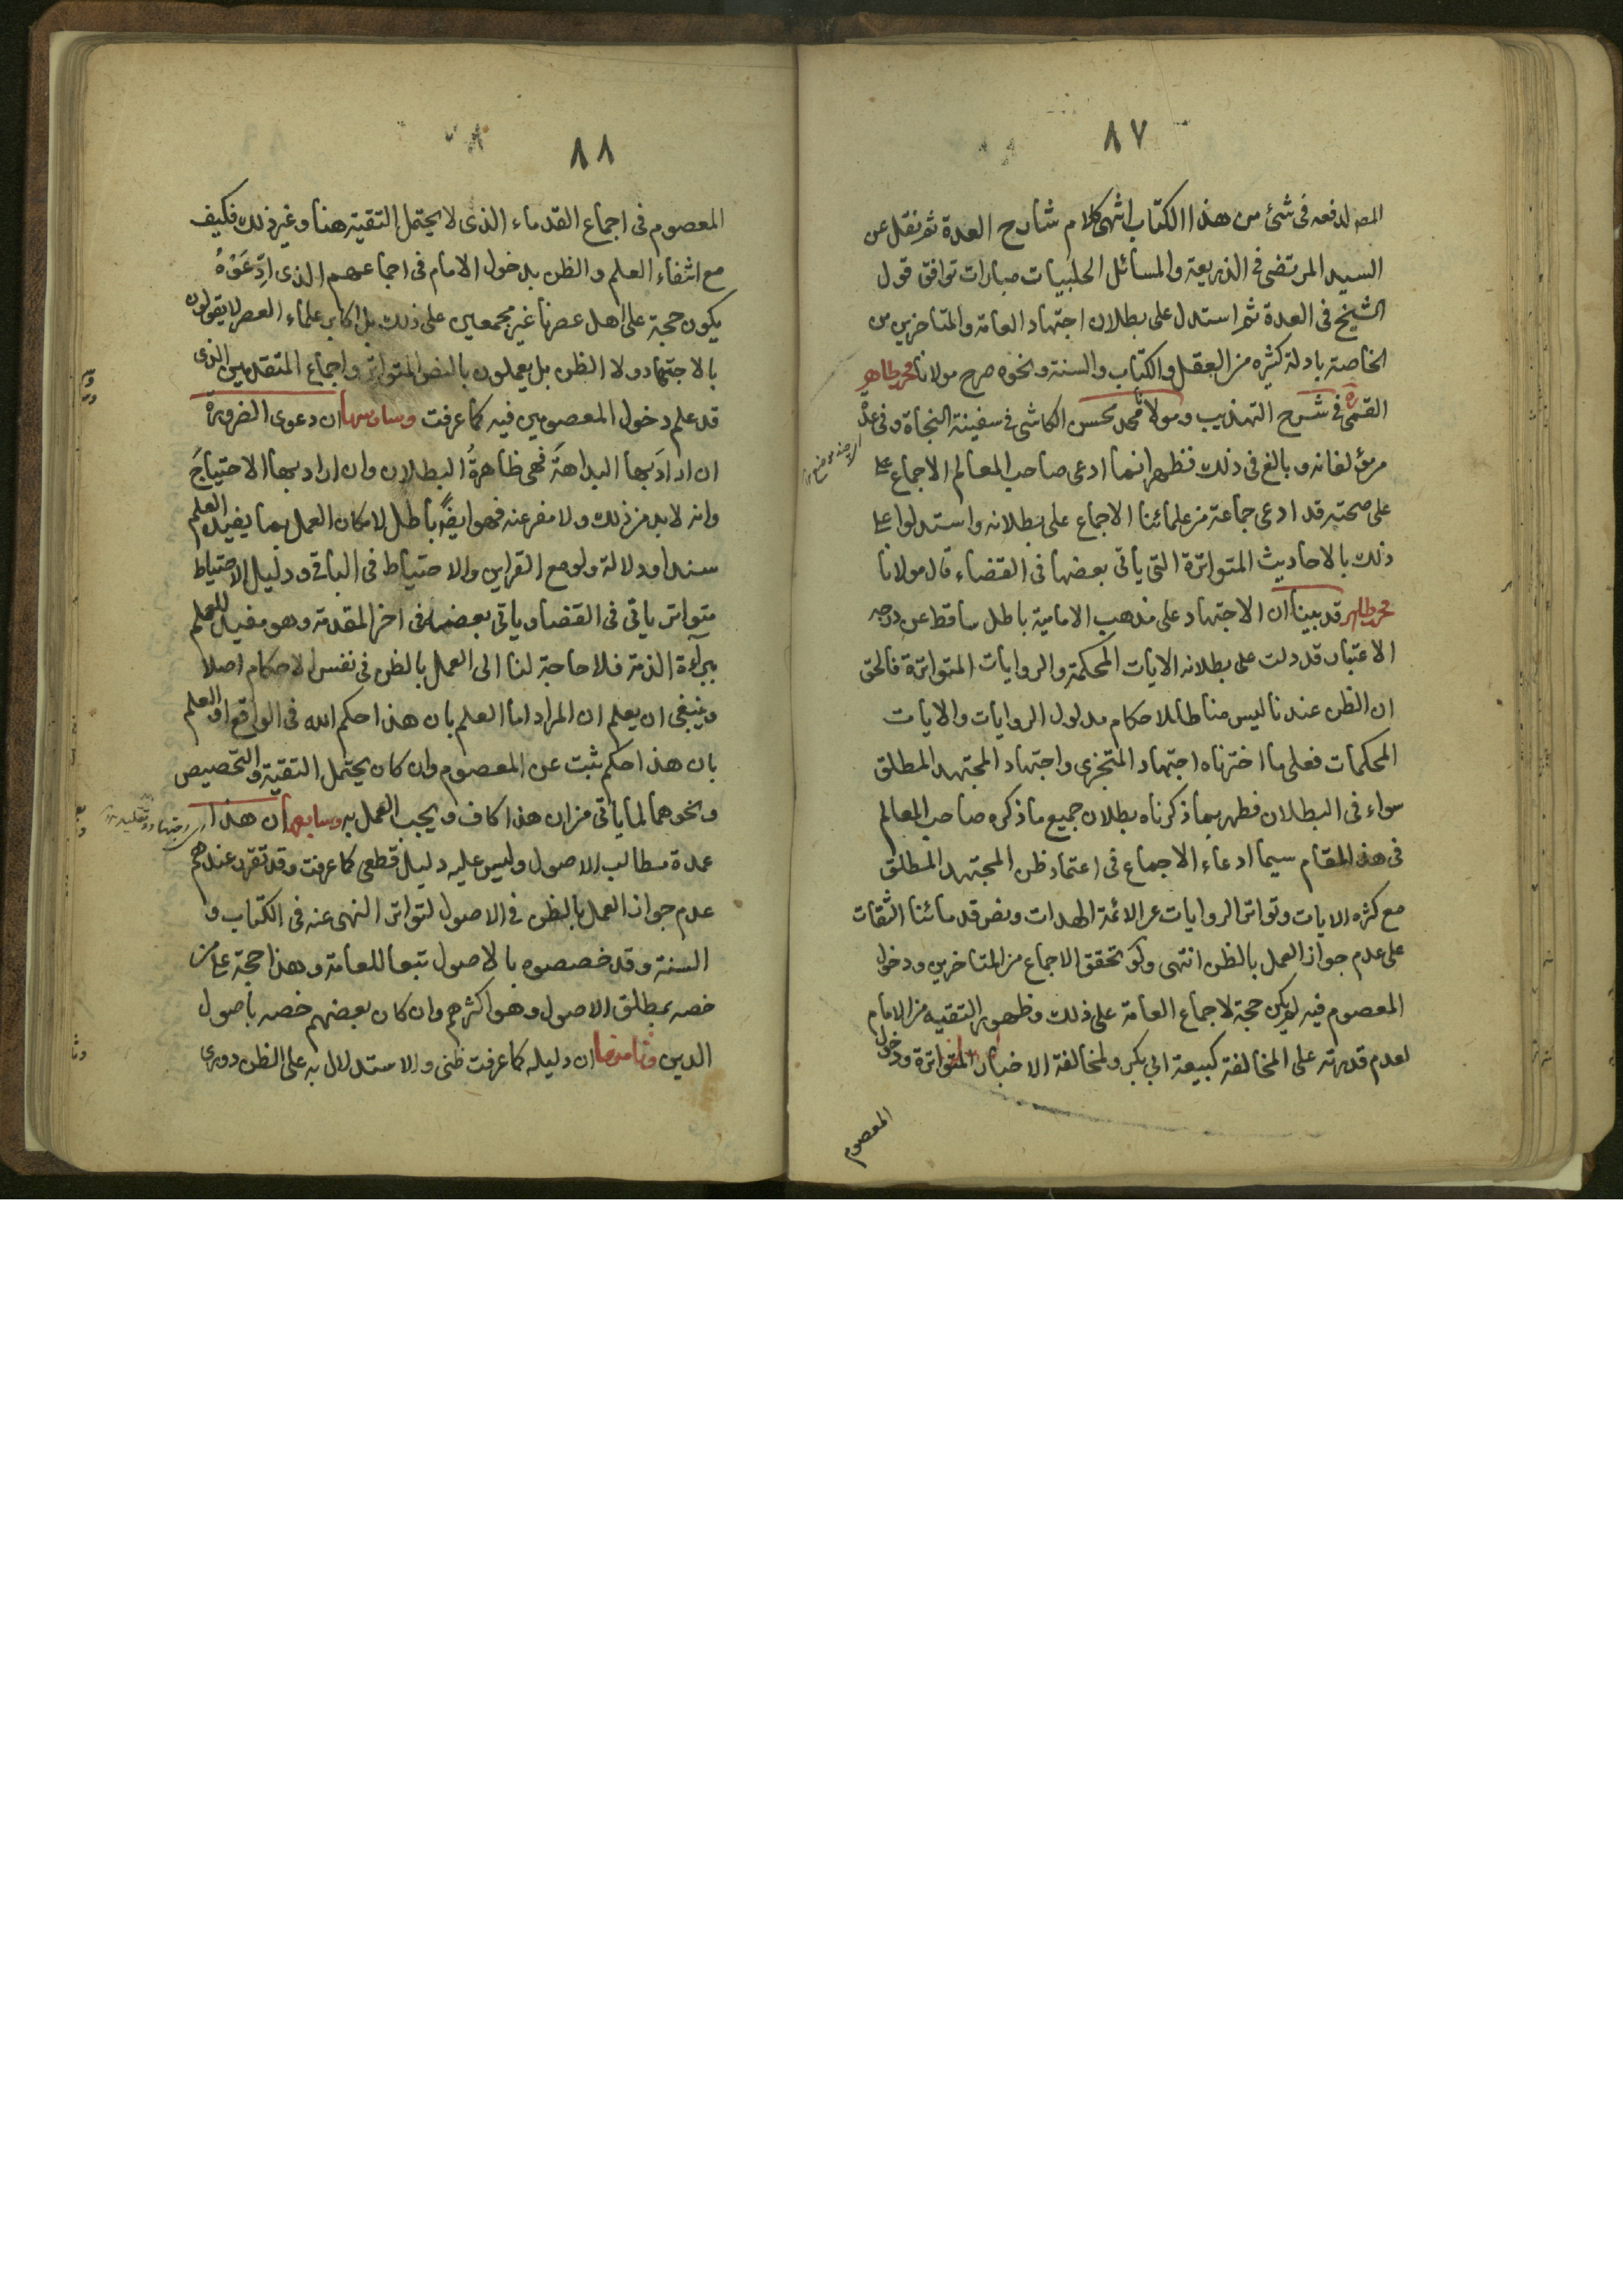 ٨٧
المص لدفعه فى شئ من هذا الكتاب انتهى كلام شارح العدة ثم نقل عن
السيد المرتضى فى الذريعة والمسائل الحلبيات عبارات توافق قول
الشيخ فى العدة ثم استدل على بطلان اجتهاد العامة والمتاخرين من
الخاصة بادلة كثيره من العقل والكتاب والسنة ونحوه صرح مولانا محمد طاهر
القمى فى شرح التهذيب ومولانا محمد محسن الكاشى فى سفينة النجاة وفى عدة
مولفاته وبالغ فى ذلك فظهر انما ادعى صاحب المعالم الاجماع على
على صحته قد ادعى جماعة من علمائنا الاجماع على بطلانه واستدلوا على
ذلك بالاحاديث المتواترة التى ياتى بعضها فى القضاء قال مولانا
محمد طاهر قد بينا ان الاجتهاد على مذهب الامامية باطل ساقط عن درجه
الاعتبار قد دلت على بطلانه الايات المحكمة والروايات المتواترة فالحق
ان الظن عندنا ليس مناطا للاحكام مدلول الروايات والايات
المحكمات فعلى ما اخترناه اجتهاد المتجزى واجتهاد المجتهد المطلق
سواء فى البطلان فظهر بما ذكرناه بطلان جميع ما ذكره صاحب المعالم
فى هذا المقام سيما ادعاء الاجماع فى اعتماد ظن المجتهد المطلق
مع كثره الايات وتواتر الروايات عن الائمة الهدات ونص قدمائنا الثقات
على عدم جواز العمل بالظن انتهى ولو تحقق الاجماع من المتاخرين ودخول
المعصوم فيه لم يكن حجة لاجماع العامة على ذلك وظهور التقيه من الامام
لعدم قدرته على المخالفة كبيعة ابى بكر ولمخالفة الاخبار المتواترة ودخول
المعصوم
٨٨
المعصوم فى اجماع القدماء الذى لا يحتمل التقية هنا وغير ذلك فكيف
مع انتفاء العلم والظن بدخول الامام فى اجماعهم الذى ادِّعَوْهُ
يكون حجة على اهل عصرنا غير مجمعين على ذلك بل اكابر علماء العصر لا يقولون
بالاجتهاد ولا الظن بل يعملون بالنص المتواتر واجماع المتقدمين الذى
قد علم دخول المعصومين فيه كما عرفت وسادسها ان دعوى الضرورة
ان ارادَ بها البداهةَ فهى ظاهرةُ البطلان وان اراد بها الاحتياجَ
وانه لا بد من ذلك ولا مفر عنه فهو ايضًا باطل لامكان العمل بما يفيد العلم
سندا ودلالة ولو مع القراين والاحتياط فى الباقى ودليل الاحتياط
متواتر ياتى فى القضا وياتى بعضه فى اخر المقدمة وهو مفيد للعلم
ببراءة الذمة فلا حاجة لنا الى العمل بالظن فى نفس الاحكام اصلا
وينبغى ان يعلم ان المراد اما العلم بان هذا حكم الله فى الواقع او العلم
بان هذا حكم ثبت عن المعصوم وان كان يحتمل التقية والتخصيص
ونحوهما لما ياتى من ان هذا كاف ويجب العمل به وسابعها ان هذا
عمدة مطالب الاصول وليس عليه دليل قطعى كما عرفت وقد تقرر عندهم
عدم جواز العمل بالظن فى الاصول لتواتر النهى عنه فى الكتاب و
السنة وقد خصصوه بالاصول تبعا للعامة وهذا حجة على من
خصه بمطلق الاصول وهو اكثرهم وان كان بعضهم خصه باصول
الدين وثامنها ان دليله كما عرفت ظنى والاستدلال به على الظن دورى